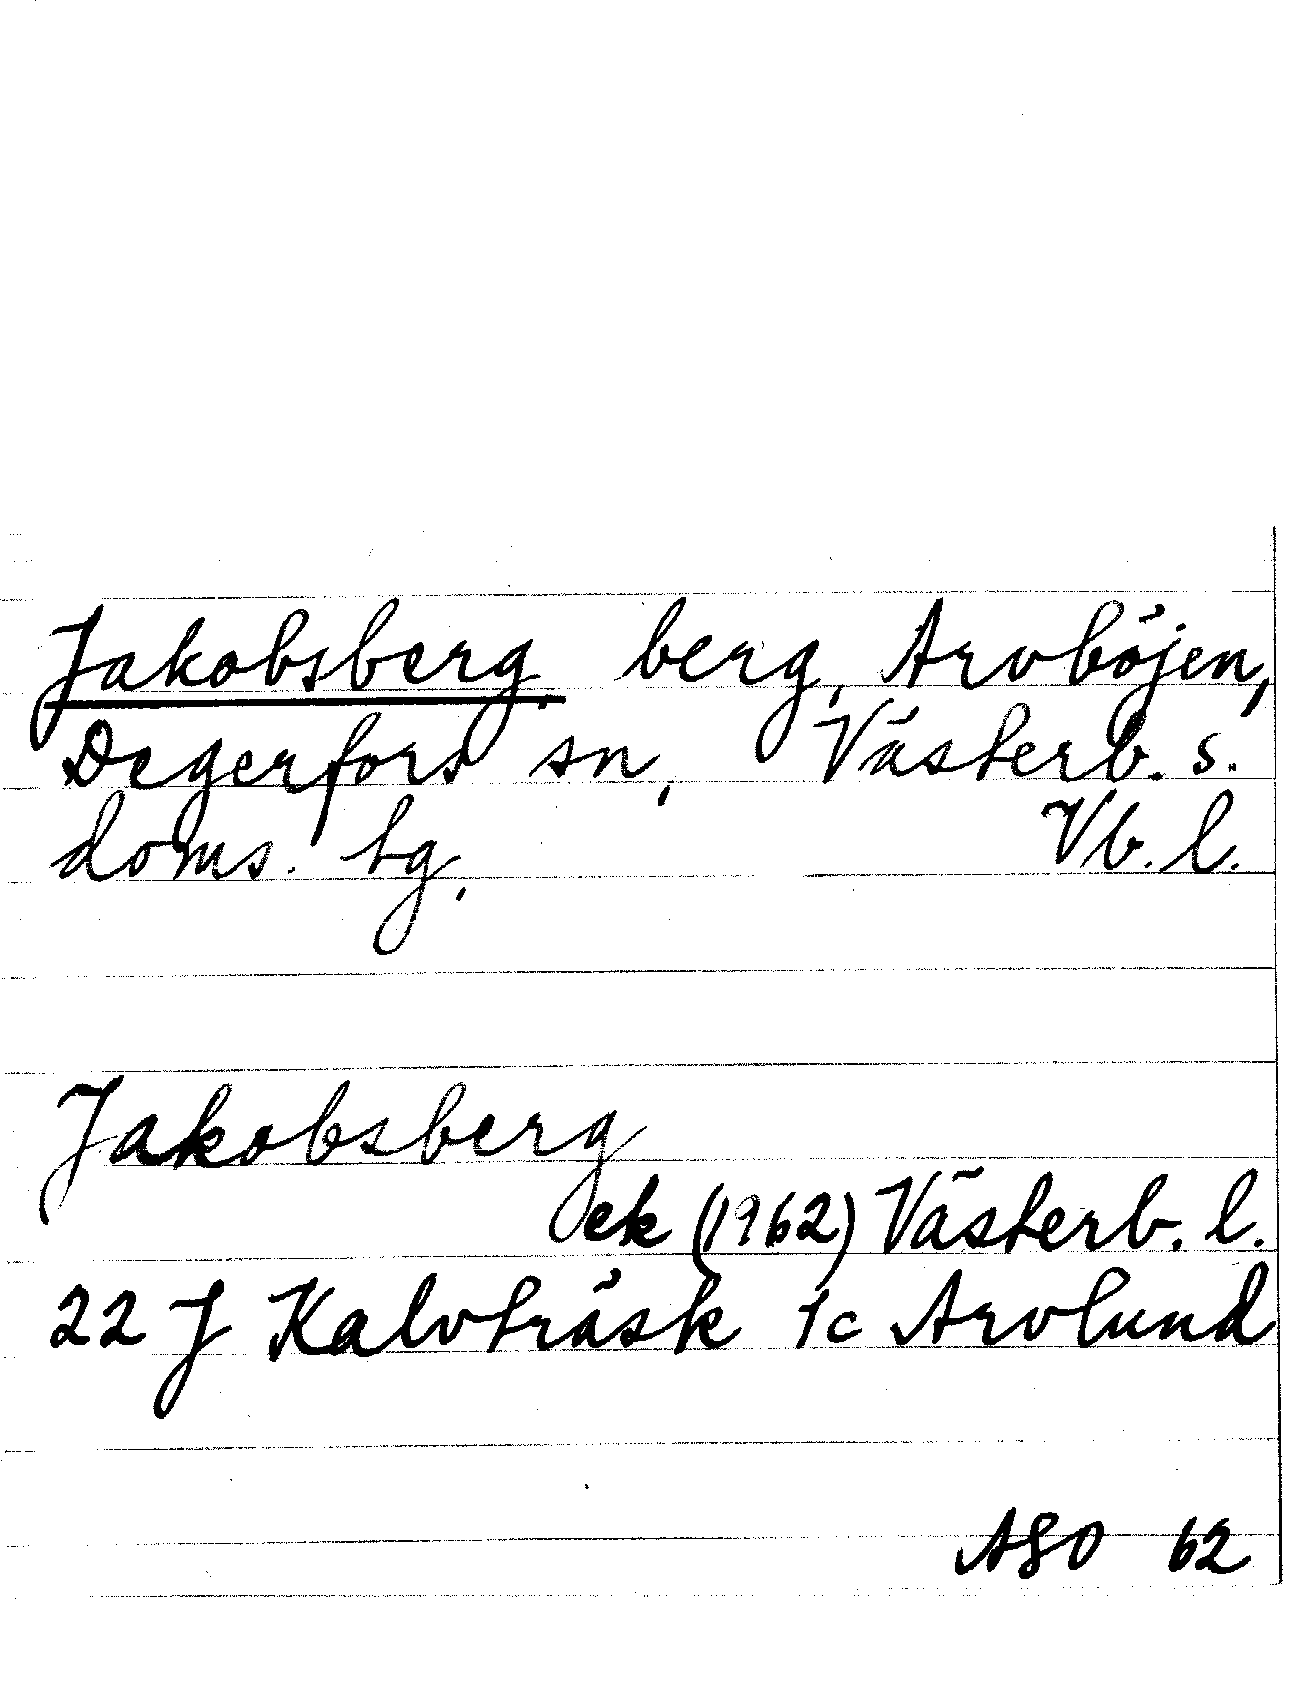 Jakobsberg, berg, Arvböjen,
Degerfors sn, Västerb. s.
doms. tg, Vb. l.
Jakobsberg
ek (1962) Västerb. l.
22 J Kalvträsk 1c Arvlund
ASO 62